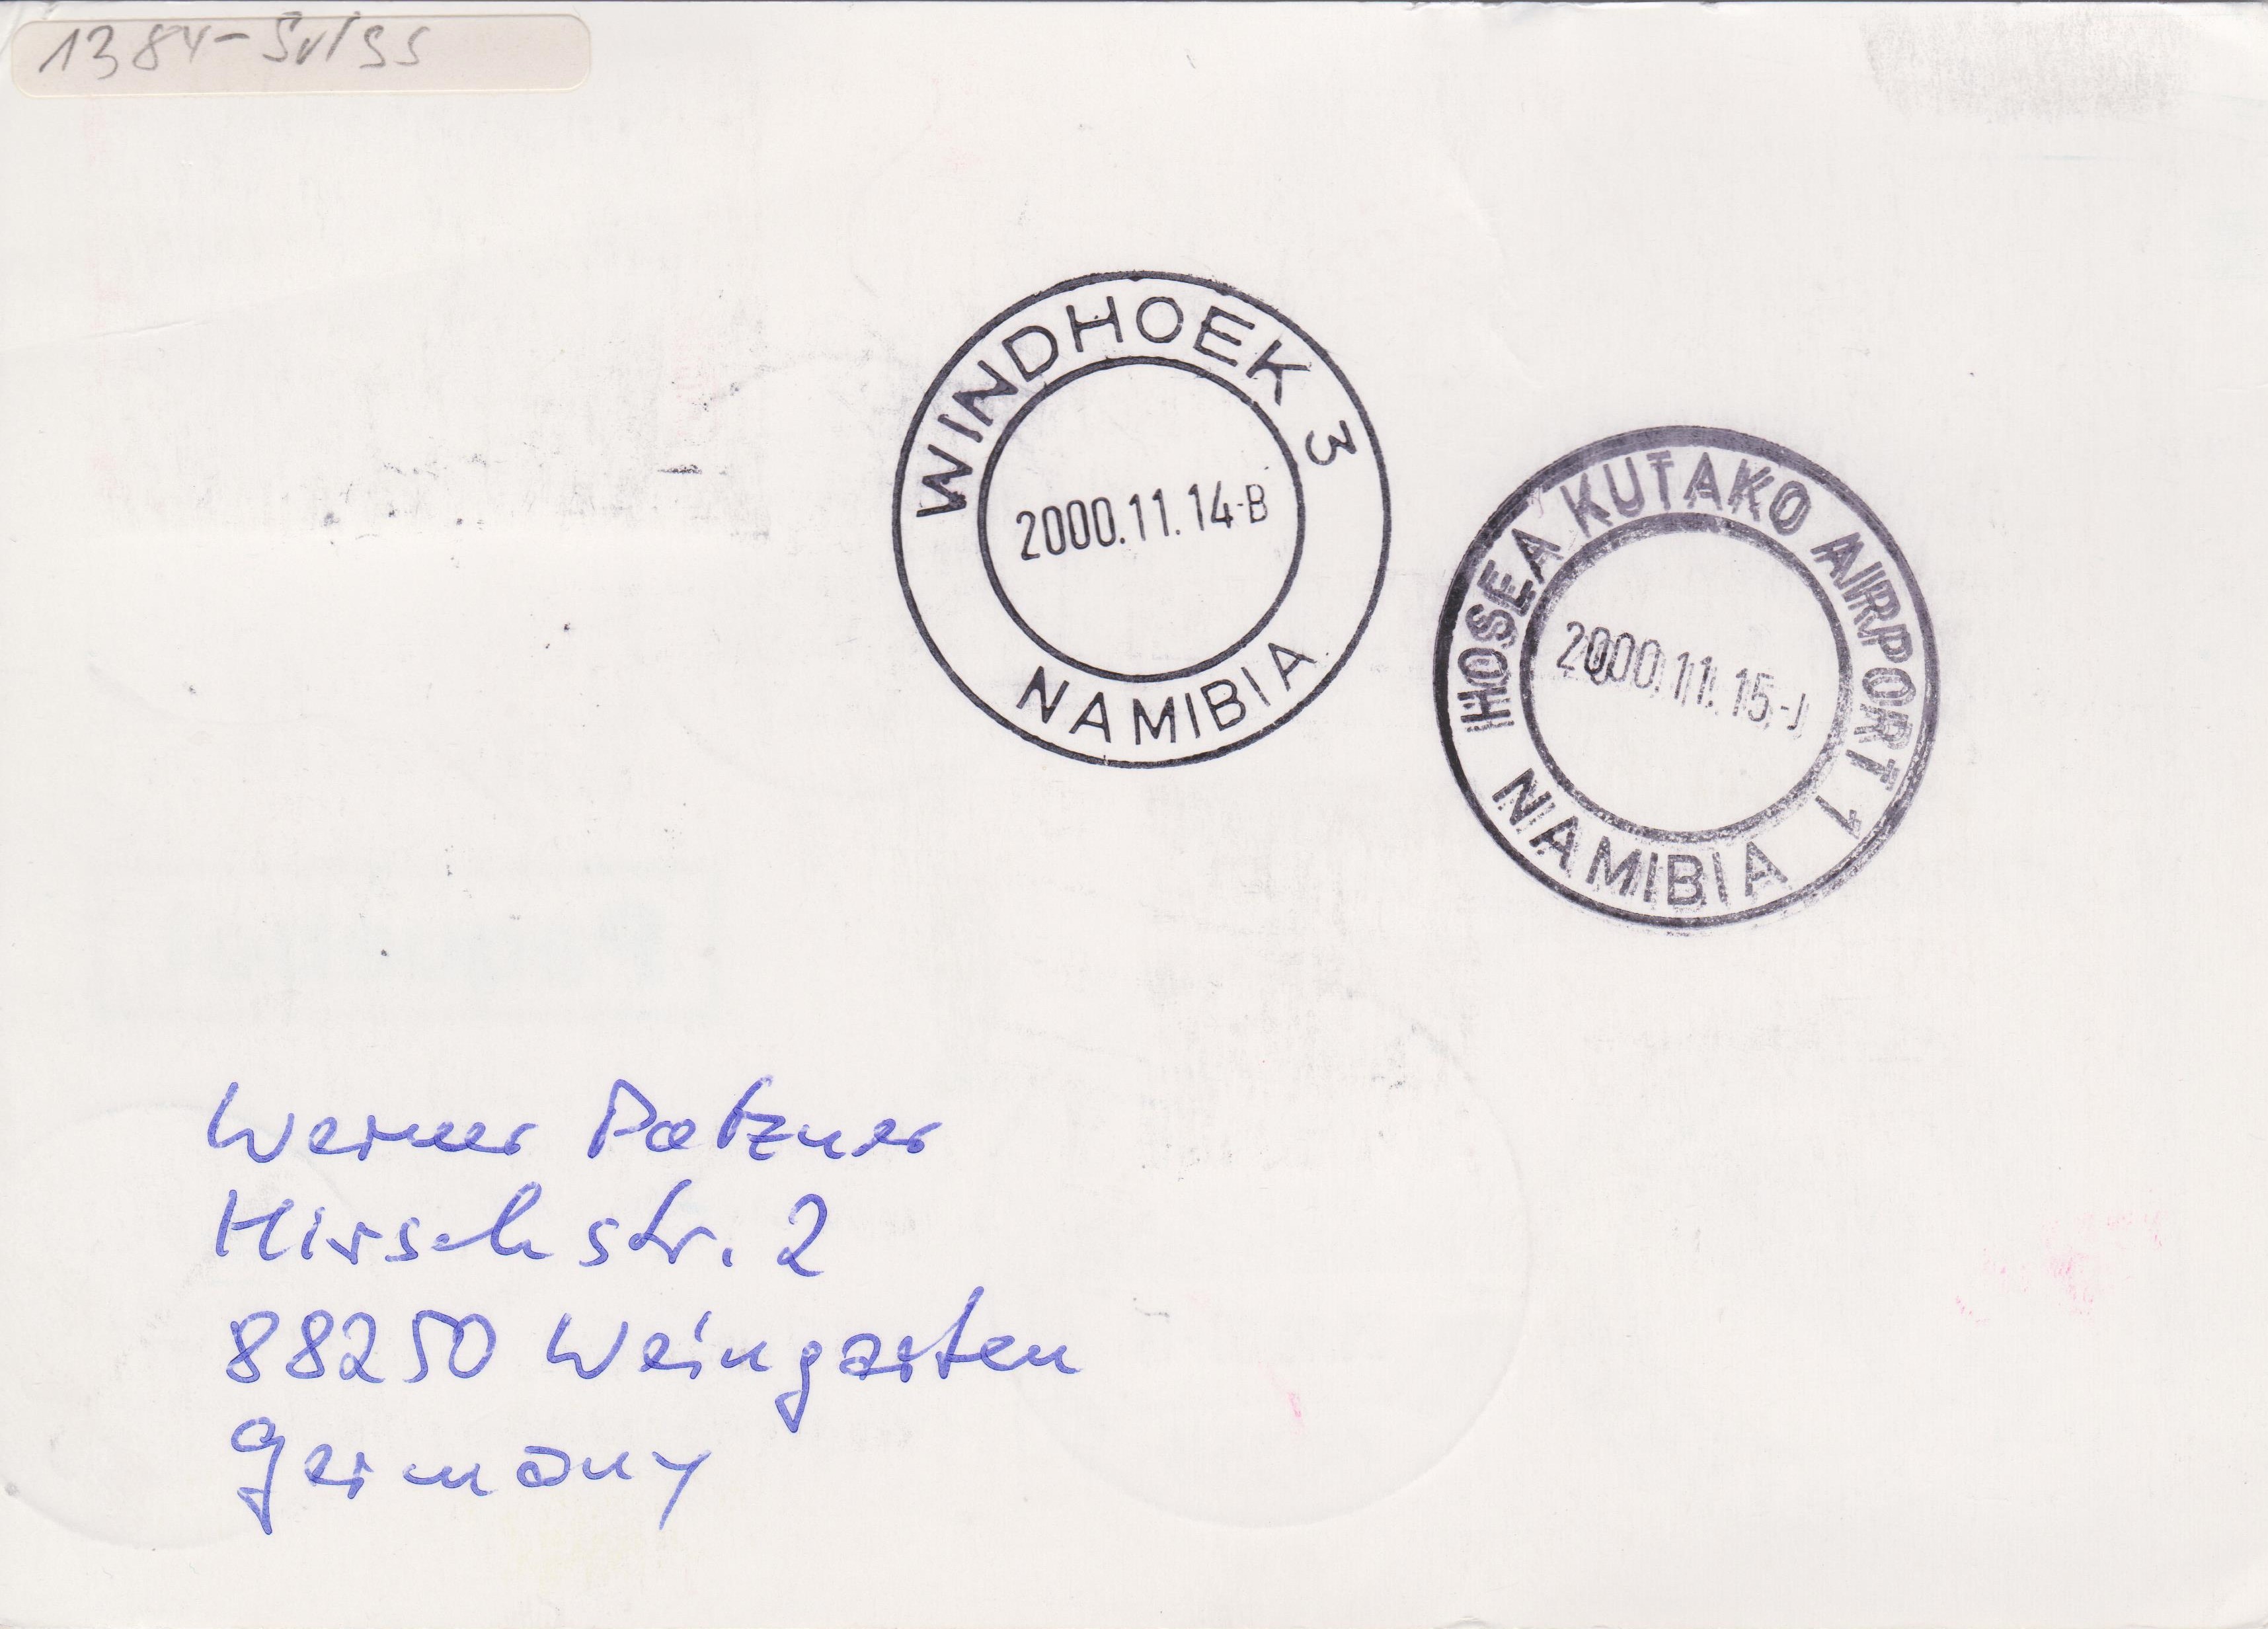 1384-Sviss
WINDHOEK 3
2000.11.14-B
NAMIBIA
HOSEA KUTAKO AIRPORT 1
2000.11.15-J
NAMIBIA
Werner Patzner
Hirschstr. 2
88250 Weingarten
Germany